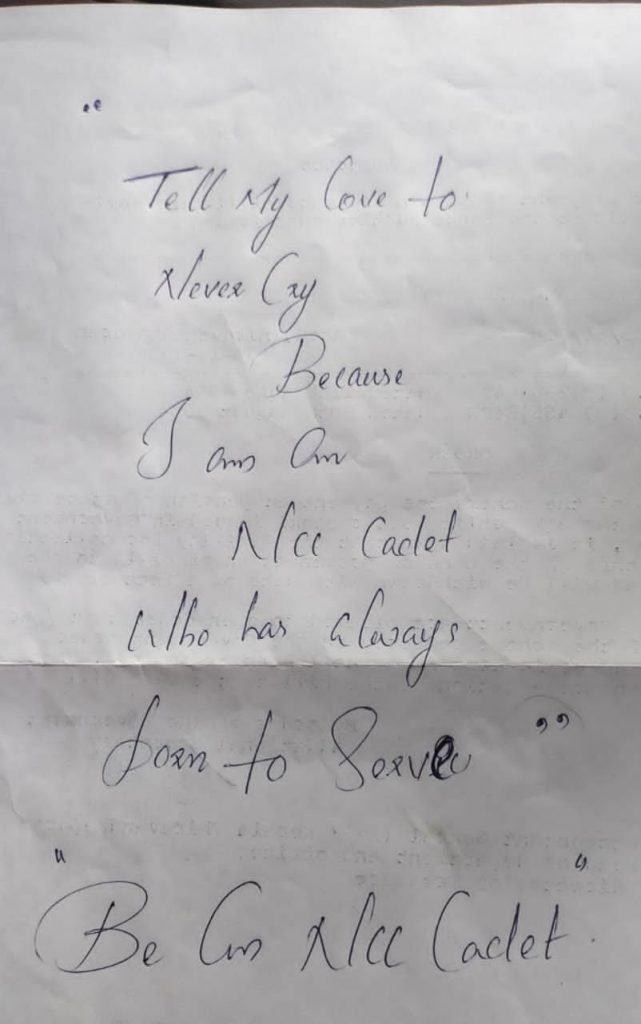 "
Tell My Love to.
Never Cry
Because
I am an
Ncc Cadet
Who has always
born to Serve "
" Be an Ncc Cadet. "